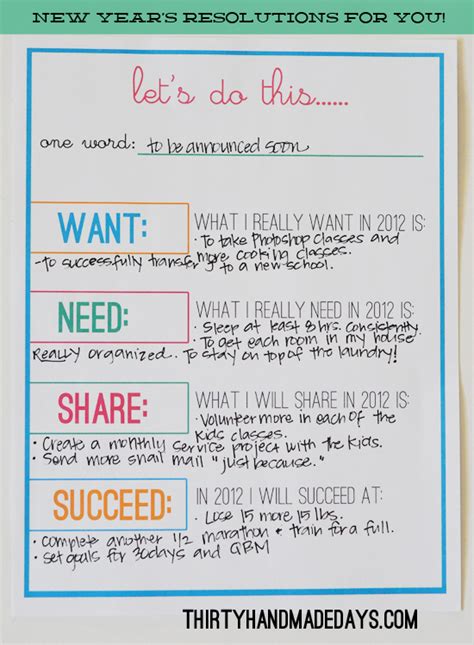 NEW YEAR'S RESOLUTIONS FOR YOU!
let's do this......
one word: to be announced soon
WANT: WHAT I REALLY WANT IN 2012 IS:
· To take Photoshop classes and
more cooking classes.
- to successfully transfer J to a new school.
NEED: WHAT I REALLY NEED IN 2012 IS:
· Sleep at least 8 hrs. consistently
· To get each room in my house
Really organized. · To stay on top of the laundry!
SHARE: WHAT I WILL SHARE IN 2012 IS:
· Volunteer more in each of the
kids classes.
· Create a monthly service project with the kids.
· Send more snail mail "just because."
SUCCEED: IN 2012 I WILL SUCCEED AT:
· Lose 15 more lbs.
· Complete another 1/2 marathon + train for a full.
· Set goals for 30days and QBM
THIRTYHANDMADEDAYS.COM